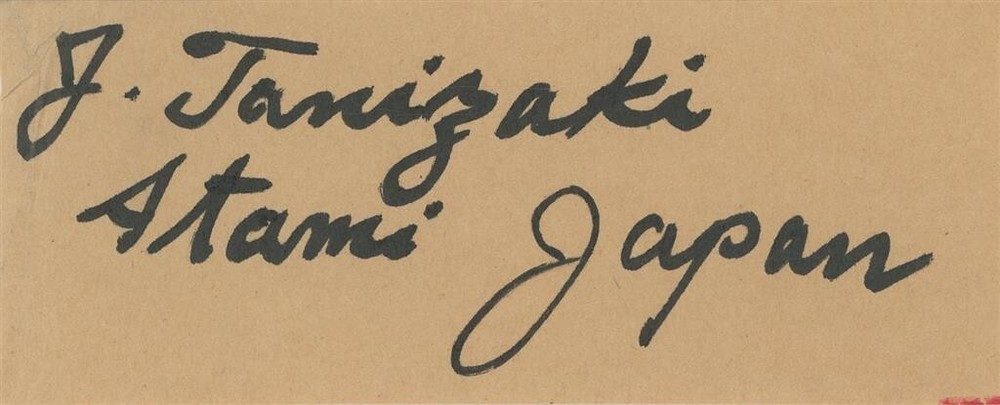 J. Tanizaki
Atami Japan